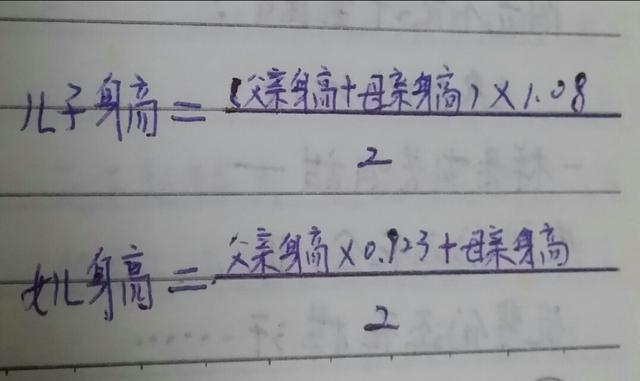 儿子身高=(父亲身高+母亲身高)×1.08
2
女儿身高=父亲身高×0.923+母亲身高
2